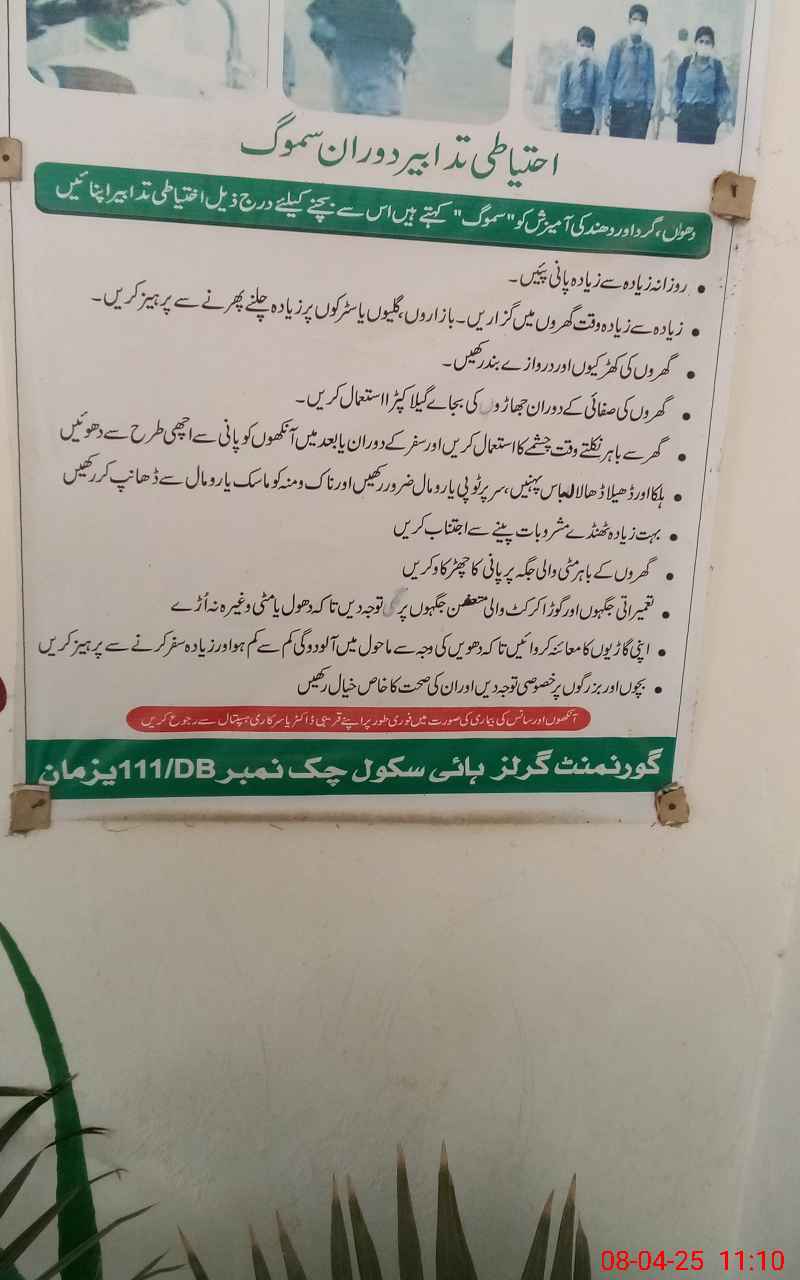 احتیاطی تدابیر دوران سموگ
دھواں، گرد اور دھند کی آمیزش کو "سموگ" کہتے ہیں اس سے بچنے کیلئے درج ذیل احتیاطی تدابیر اپنائیں
• روزانہ زیادہ سے زیادہ پانی پئیں۔
• زیادہ سے زیادہ وقت گھروں میں گزاریں۔ بازاروں، گلیوں یا سٹرکوں پر زیادہ چلنے پھرنے سے پرہیز کریں۔
• گھروں کی کھڑکیوں اور دروازے بند رکھیں۔
• گھروں کی صفائی کے دوران جھاڑوں کی بجائے گیلا کپڑا استعمال کریں۔
• گھر سے باہر نکلتے وقت چشمے کا استعمال کریں اور سفر کے دوران یا بعد میں آنکھوں کو پانی سے اچھی طرح سے دھوئیں
• ہلکا اور ڈھیلا ڈھالا لباس پہنیں، سر پر ٹوپی یا رومال ضرور رکھیں اور ناک و منہ کو ماسک یا رومال سے ڈھانپ کر رکھیں
• بہت زیادہ ٹھنڈے مشروبات پینے سے اجتناب کریں
• گھروں کے باہر مٹی والی جگہ پر پانی کا چھڑکاو کریں
• تعمیراتی جگہوں اور کوڑا کرکٹ والی متعفن جگہوں پر توجہ دیں تاکہ دھول یا مٹی وغیرہ نہ اُڑے
• اپنی گاڑیوں کا معائنہ کروائیں تاکہ دھویں کی وجہ سے ماحول میں آلودوگی کم سے کم ہو اور زیادہ سفر کرنے سے پرہیز کریں
• بچوں اور بزرگوں پر خصوصی توجہ دیں اور ان کی صحت کا خاص خیال رکھیں
آنکھوں اور سانس کی بیماری کی صورت میں فوری طور پر اپنے قریبی ڈاکٹر یا سرکاری ہسپتال سے رجوع کریں
گورنمنٹ گرلز ہائی سکول چک نمبر 111/DB یزمان
08-04-25 11:10